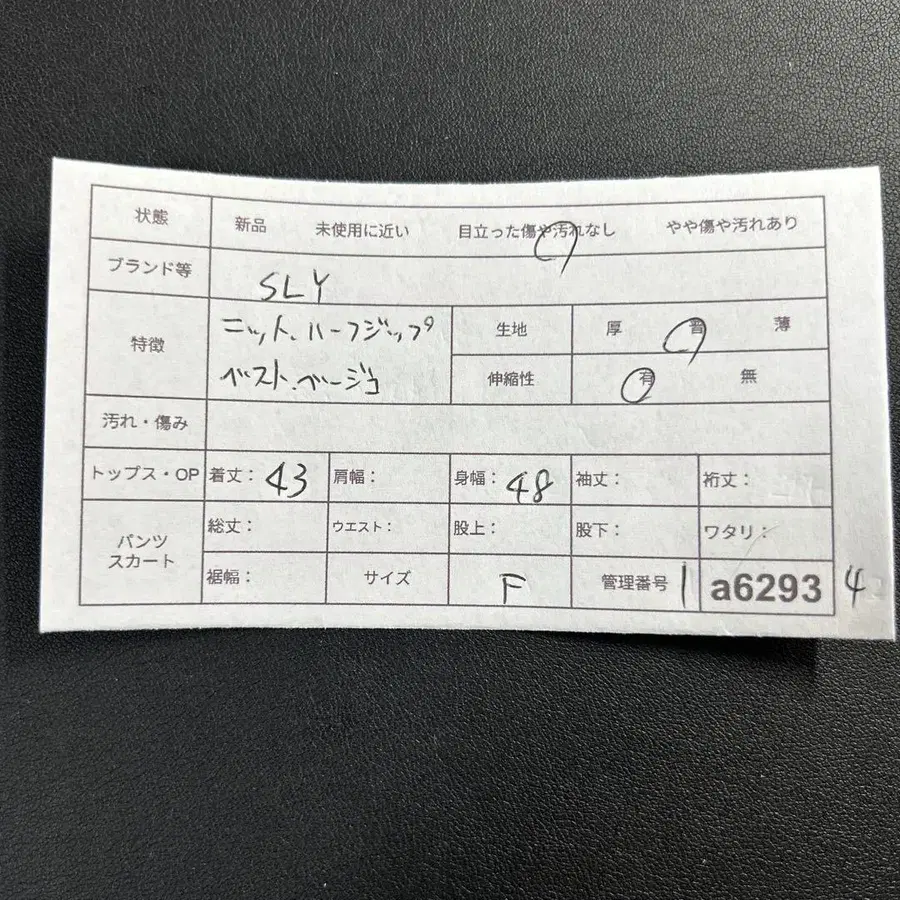 状態 新品 未使用に近い 目立った傷や汚れなし やや傷や汚れあり
ブランド等 SLY
特徴 ニット.ハーフジップ 生地 厚 普 薄
ベスト.ベージュ 伸縮性 有 無
汚れ・傷み
トップス・OP 着丈: 43 肩幅: 身幅: 48 袖丈: 裄丈:
パンツ スカート 総丈: ウエスト: 股上: 股下: ワタリ:
裾幅: サイズ F 管理番号 1 a6293 4